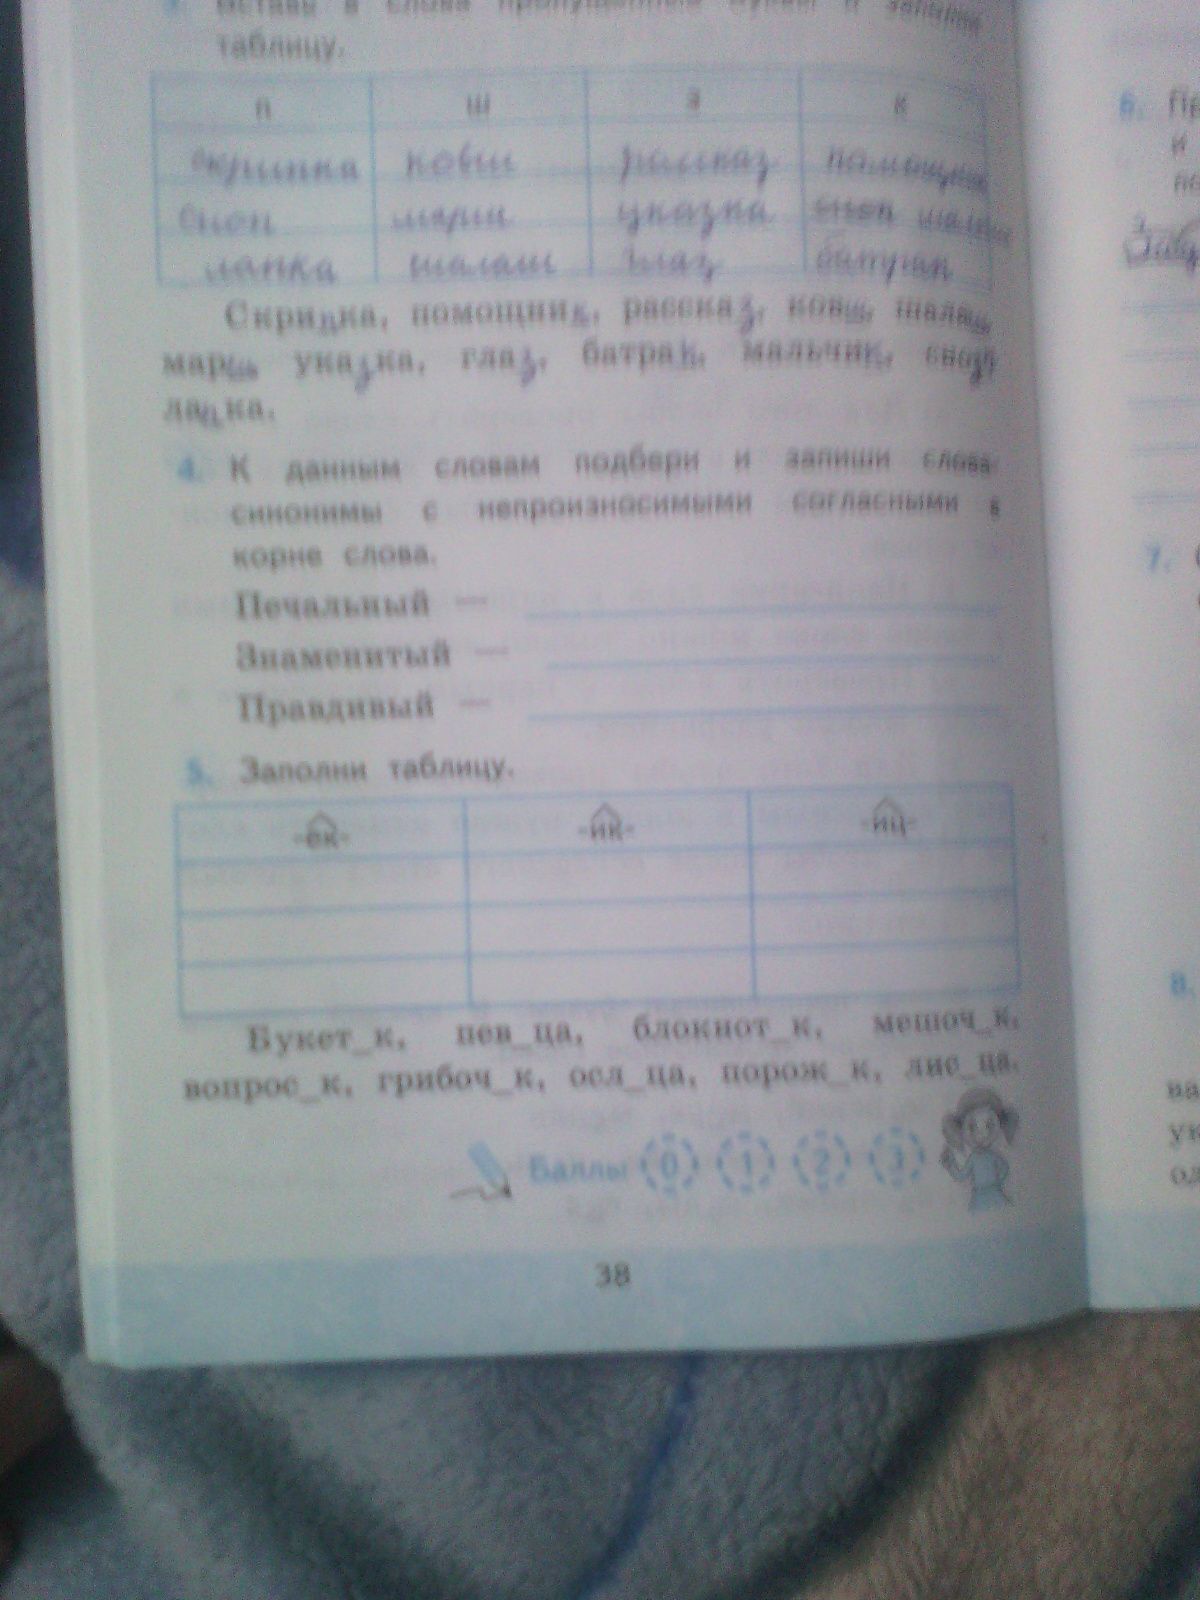 3. Вставь в слова пропущенные буквы и заполни
таблицу.
п ш з к
скрипка ковш рассказ помощник
сноп марш указка сноп
лапка шалаш глаз батрак
Скрипка, помощник, рассказ, ковш, шалаш,
марш указка, глаз, батрак, мальчик,
лапка.
4. К данным словам подбери и запиши слова
синонимы с непроизносимыми согласными в
корне слова.
Печальный —
Знаменитый —
Правдивый —
5. Заполни таблицу.
-ек- -ик- -иц-
Букет_к, пев_ца, блокнот_к, мешоч_к,
вопрос_к, грибоч_к, осл_ца, порож_к, лис_ца.
Баллы 0 1 2 3
38
6.
7.
8.